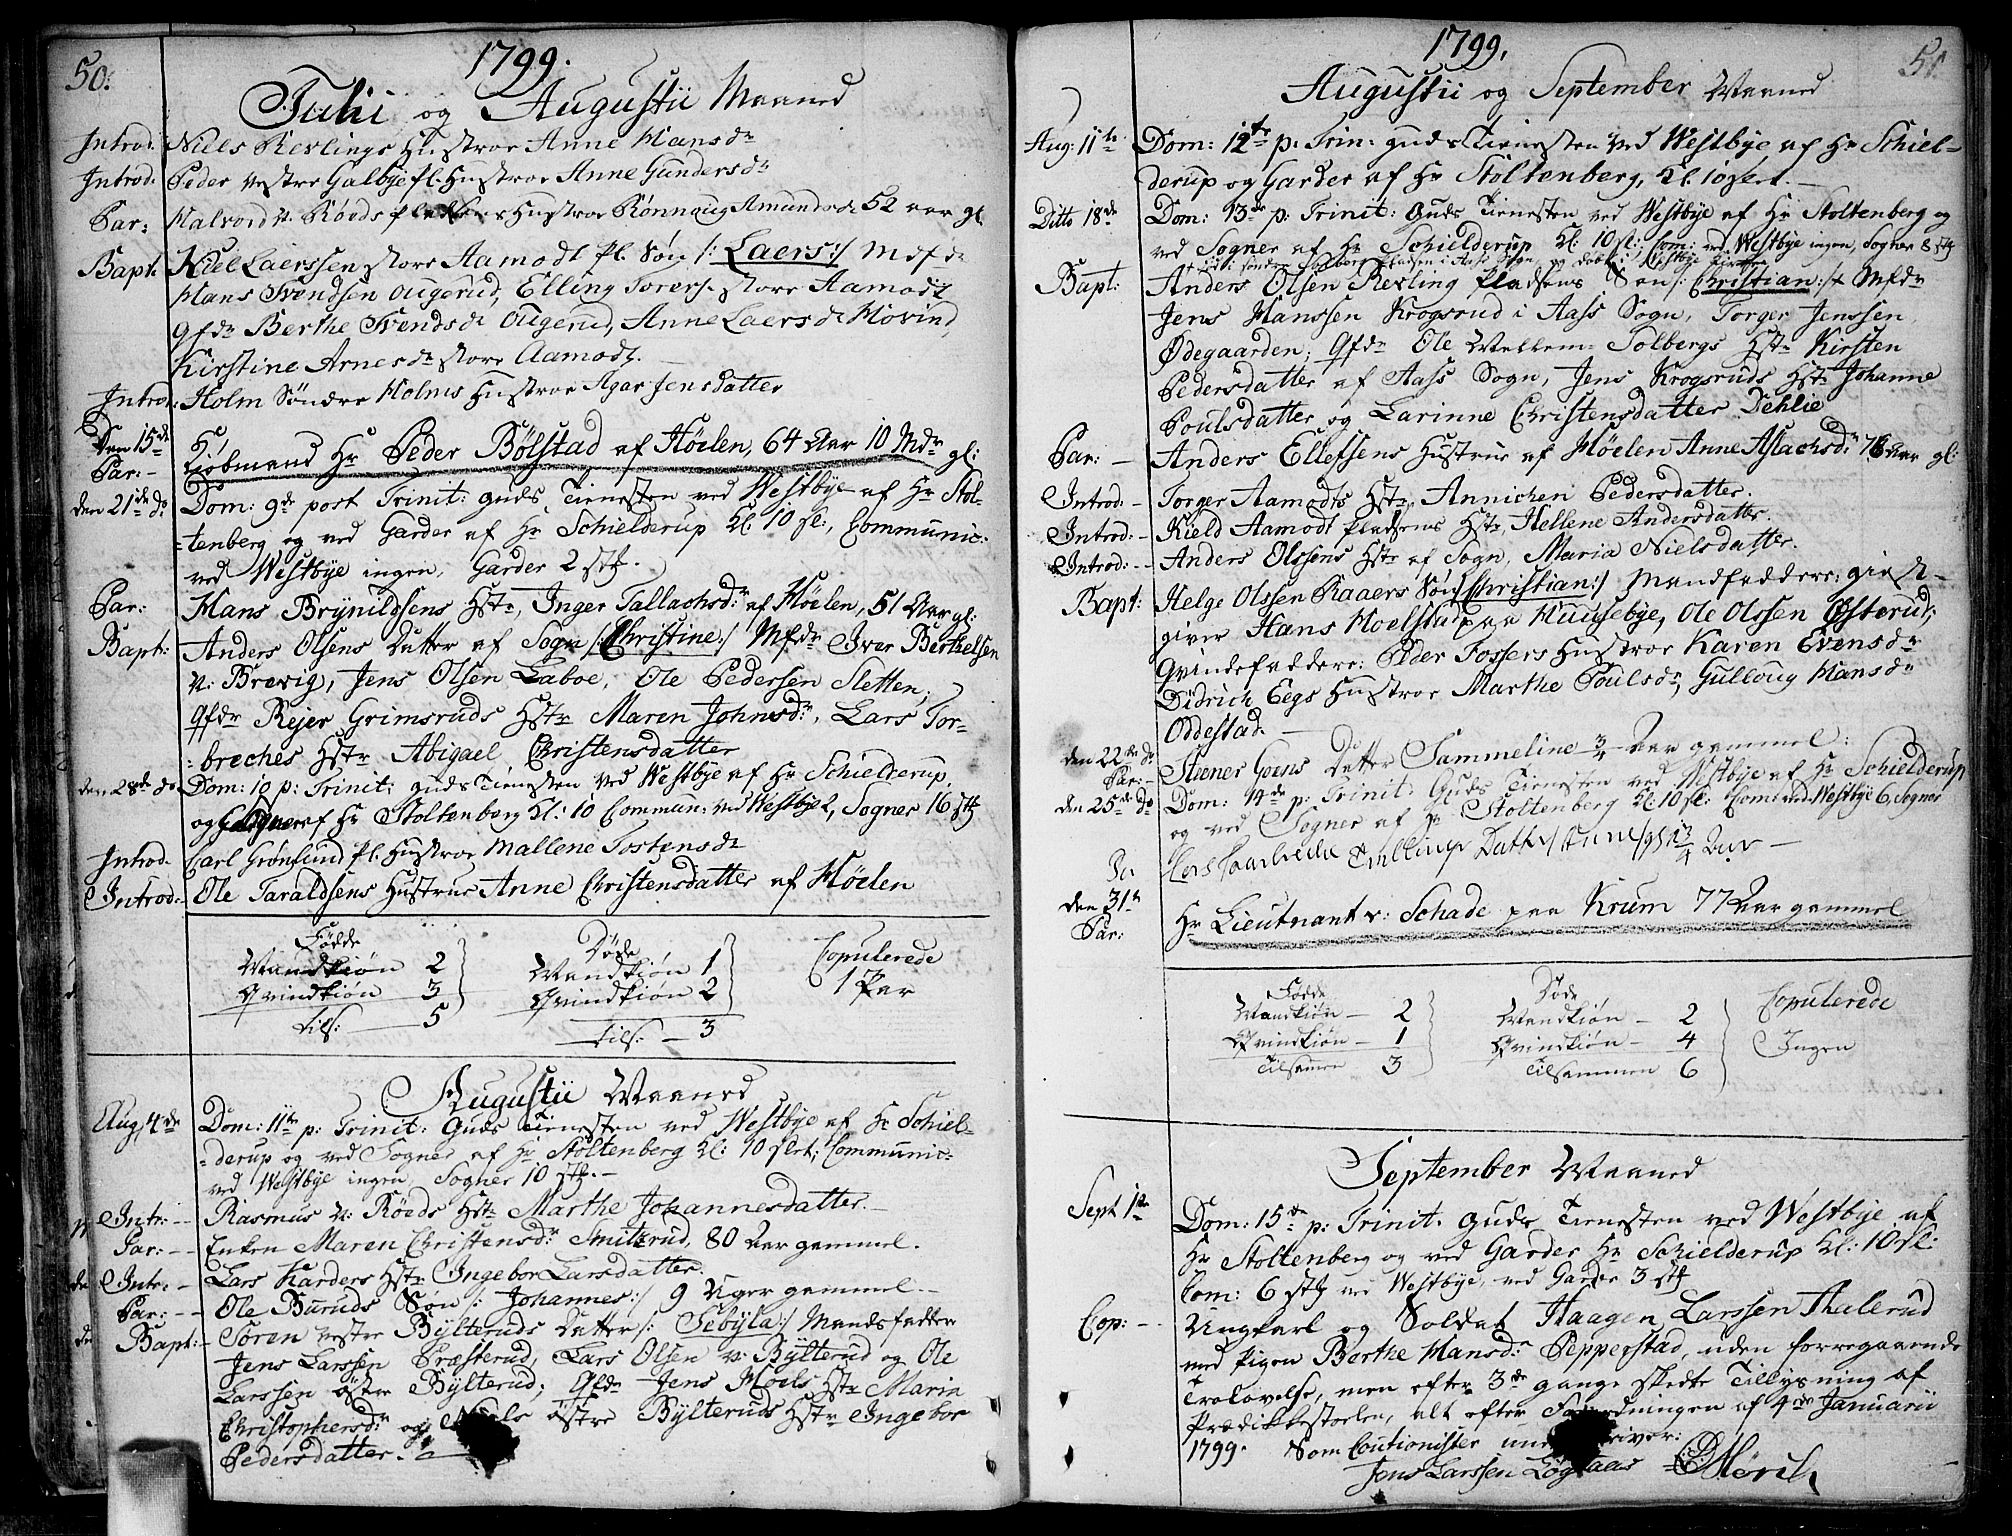 50.
1799.
Julii og Augustii Maaned
Introd. Niels Revlings Hustroe Anne Hansdr
Introd. Peder Vestre Galbye pl. Hustroe Anne Gundersdr
Par: Halvord v: Røeds Hustroe Rønnaug Amundsdr 52 aar gl
Bapt. Kiel Laerssen store Aamodt pl. Søn /: Laers:/ Mfdr
Hans Svendsen Ougerud, Elling Torers. store Aamodt
Qfdr Berthe Svendsdr Ougerud, Anne Laersdr Hovind
Kirstine Arnesdr store Aamodt.
Introd: Holm Søndre Holms Hustroe Agar Jensdatter
Den 15de
Par: - Kiøbmand Hr Peder Bølstad af Høelen, 64 Aar 10 Mdr gl:
den 21de do Dom: 9de post Trinit: Guds Tienesten ved Westbye af Hr Stol-
-tenberg og ved Garder af Hr Schielderup Kl. 10 sl., Communic:
ved Westbye ingen, Garder 2 stk.
Par: Hans Brynildsens Hstr, Inger Tallachsdr af Høelen, 51 Aar gl:
Bapt: Anders Olsens Datter af Sogn /: Christine:/ Mfdr Iver Berthelsen
v: Brevig, Jens Olsen Laboe, Ole Pedersen Sletten;
Qfdr Rejer Grimsruds Hstr Maren Johnsdr, Lars Tor-
-breches Hstr Abigael Christensdatter
den 28de do Dom: 10 p: Trinit: Guds Tienesten ved Westbye af Hr Schielderup
og af Hr Stoltenberg Kl: 10 Commun: ved Westbye 2, Sogner 16 stk
Introd. Carl Grønlund pl. Hustroe Mallene Tostensdr
Introd: - Ole Taraldsens Hustrue Anne Christensdatter af Høelen
Fødde Døde Copulerede
Mandkiøn 2 Mandkiøn 1 1 Par
Qvindkiøn 3 Qvindkiøn 2
tils: 5 tils: 3
Augustii Maaned
Aug. 4de Dom: 11te p: Trinit: Guds Tienesten ved Westbye af Hr Schiel-
-derup og ved Sogner af Hr Stoltenberg Kl: 10 slet; Communic:
ved Westbye ingen, Sogner 10 stk. -
Intr: - Rasmus v: Røeds Hstr Marthe Johannesdatter. -
Par: - - Enken Maren Christensdr Smitzrud, 80 Aar gammel.
Intr: - Lars Karders Hstr Ingebor Larsdatter.
Par: - - Ole Buruds Søn /: Johannes:/ 9 Uger gammel. -
Bapt: - Søren vestre Bylteruds Datter /: Sebyla:/ Mandsfadder
Jens Larssen Præsterud, Lars Olsen v: Bylterud og Ole
Larssen østre Bylterud; Qfdr Jens Hoels Hstr Maria
Christophersdr og Niels østre Bylteruds Hstr Ingebor
Pedersdatter.
51.
1799.
Augustii og September Maaned
Aug: 11te Dom: 12te p: Trin: Guds Tienesten ved Westbye af Hr Schiel-
derup og Garder af Hr Stoltenberg, Kl: 10 slet. -
Ditto 18de Dom: 13de p: Trinit: Guds Tienesten ved Westbye af Hr Stoltenberg og
ved Sogner af Hr Schielderup Kl: 10 sl: Com: ved Westbye ingen, Sogner 8 stk
Bapt: Anders Olsen Revling Pladsens Søn /: Christian:/ Mfdr
Jens Hanssen Krogsrud i Aass Sogn, Torger Jenssen
Ødegaarden; Qfdr Ole Mellem: Solbergs Hstr Kirsten
Pedersdatter af Aass Sogn, Jens Krogsruds Hstr Johanne
Poulsdatter og Larinne Christensdatter Dehlie
Par: - Anders Ellefsens Hustrue af Høelen Anne Aslachsdr 76 Aar gl:
Introd: - Torger Aamodts Hstr, Annichen Pedersdatter.
Introd: - Kield Aamodt Pladsens Hstr, Hellene Andersdatter.
Introd: - - Anders Olssens Hstr af Sogn, Maria Nielsdatter.
Bapt: Helge Olssen Raaers Søn /: Christian:/ Mandfaddere: giest-
giver Hans Hoelstad paa Huusebye, Ole Olssen Østerud;
Qvindefaddere: Peder Fossers Hustroe Karen Evensdr
Didrich Eegs Hustroe Marthe Poulsdr, Gulloug Hansdr
Oddestad. -
den 22de do
Par: - Steener Goens Datter Sammeline 3/4 Aar gammel:
den 25de do Dom: 14de p: Trinit. Guds Tienesten ved Westbye af Hr Schielderup
og ved Sogner af Hr Stoltenberg Kl: 10 sl: Com: ved Westbye 6, Sogner
den 31te
Par: Hr Lieutnant v: Schade paa Krum 77 Aar gammel
Fødde Døde Copulerede
Mandkiøn - 2 Mandkiøn - 2 Ingen
Qvindkiøn - 1 Qvindkiøn - 4
Tilsamen 3 Tilsammen 6
September Maaned
Sept 1te Dom: 15de p: Trinit. Guds Tienesten ved Westbye af
Hr Stoltenberg og ved Garder Hr Schielderup Kl: 10 sl:
Com: 6 stk ved Westbye, ved Garder 3 stk
Cop: - - Ungkarl og Soldat Haagen Larssen Thulerud
med Pigen Berthe Hansdr Pepperstad, uden forregaaende
Trolovelse, men efter 3de gange skedte Tillysning af
Prædikkestoelen, alt efter Forordningen af 4de Januarii
1799. Som Coutionister underskriver:
Jens Larssen